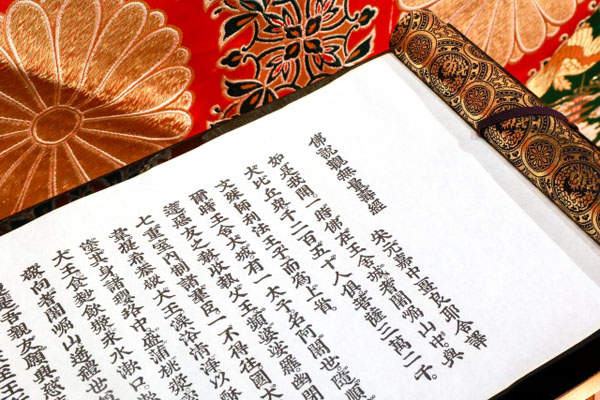 佛說觀無量壽經
宋元嘉中畺良耶舍譯
如是我聞一時佛在王舍城耆闍崛山中與
大比丘衆千二百五十人俱菩薩三萬二千
文殊師利法王子而爲上首
爾時王舍大城有一太子名阿闍世隨順
調達惡友之教收執父王頻婆娑羅幽閉
七重室內制諸群臣一不得往國大
韋提希恭敬大王澡浴清淨以酥
塗其身諸瓔珞中盛蒲桃漿
大王食麨飮漿求水漱口
敬向耆闍崛山遙禮世
是吾親友願興慈